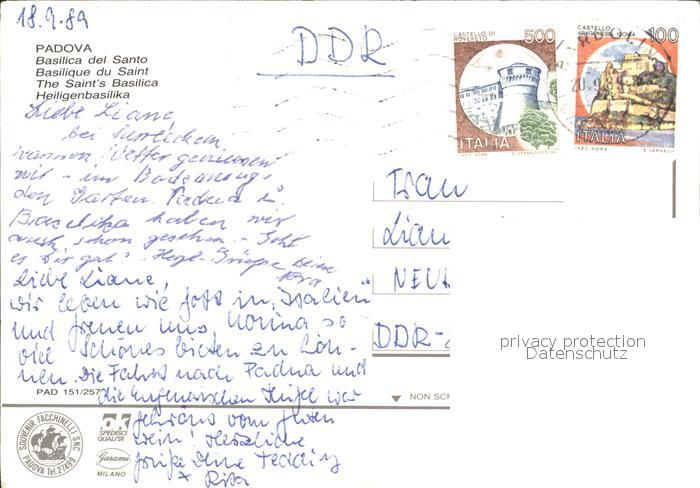 18.9.89
DDR
PADOVA
Basilica del Santo
Basilique du Saint
The Saint's Basilica
Heiligenbasilika
CASTELLO DI ROVERETO
500
ITALIA
I.P.Z.S. ROMA
CASTELLO ARAGONESE ISCHIA
100
ITALIA
I.P.Z.S. ROMA
E. VANGELLI
20.9.8
Liebe Liane,
bei herrlichem
warmen Wetter genießen
wir - im
den Garten. Padua u.
Basilika haben wir
auch schon gesehen. - Geht
es Dir gut? Herzl. Grüße Deine
Liebe Liane,
wir leben wie Gott in "Italien"
und freuen uns, so
viel Schönes bieten zu kön-
nen. Die Fahrt nach Padua und
die Euganeischen Hügel war
vom guten
Wein! Herzliche
Grüße Deine
+ Rita
Frau
Lian
NEU
DDR-
PAD 151/257
NON SCR
SOUVENIR FACCHINELLI SNC
PADOVA Tel. 27499
ak
SPEDISCI QUALITA'
Garami
MILANO
privacy protection
Datenschutz